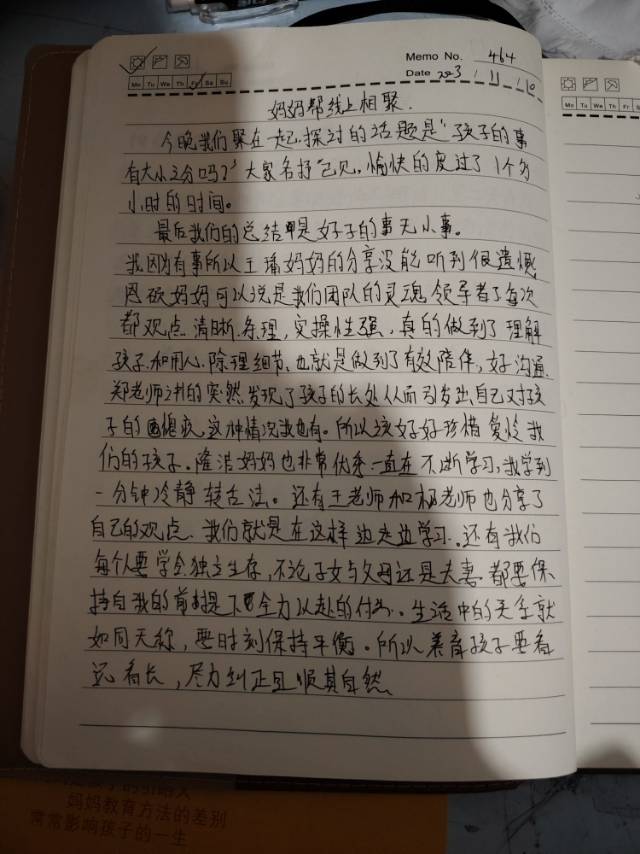 Memo No. 464
Mo Tu We Th Fr Sa Su
Date 2023 / 11 / 10
妈妈帮线上相聚.
今晚我们聚在一起,探讨的话题是“孩子的事
有大小之分吗?”大家各抒己见,愉快的度过了1个多
小时的时间。
最后我们的总结是好子的事无小事。
我因为有事所以王瑀妈妈的分享没能听到很遗憾
妈妈可以说是我们团队的灵魂领导者了每次
都观点清晰,条理,实操性强,真的做到了理解
孩子.和用心.除理细节,也就是做到了有效陪伴,好沟通.
郑老师讲的突然发现了孩子的长处从而引发出自己对孩
子的愧疚,这种情况我也有。所以该好好珍惜爱怜我
们的孩子。隆洁妈妈也非常优秀一直在不断学习,我学到
一分钟冷静转舌法。还有王老师和杨老师也分享了
自己的观点.我们就是在这样边走边学习.还有我们
每个人要学会独立生存,不论子女与父母还是夫妻.都要保
持自我的前提下要全力以赴的付出.生活中的天平就
如同天称,要时刻保持平衡。所以养育孩子要看
远看长,尽力纠正且顺其自然.
Mo Tu We Th
妈妈教育方法的差别
常常影响孩子的一生